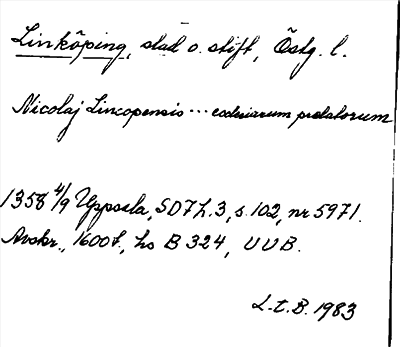 Linköping, stad o. stift, Östg. l.
Nicolaj Lincopensis ... ecclesiarum prelatorum
1358 4/9 Uppsala, SD 7 h. 3, s. 102, nr 5971.
Avskr., 1600 t., hs B 324, UUB.
L.t.B. 1983